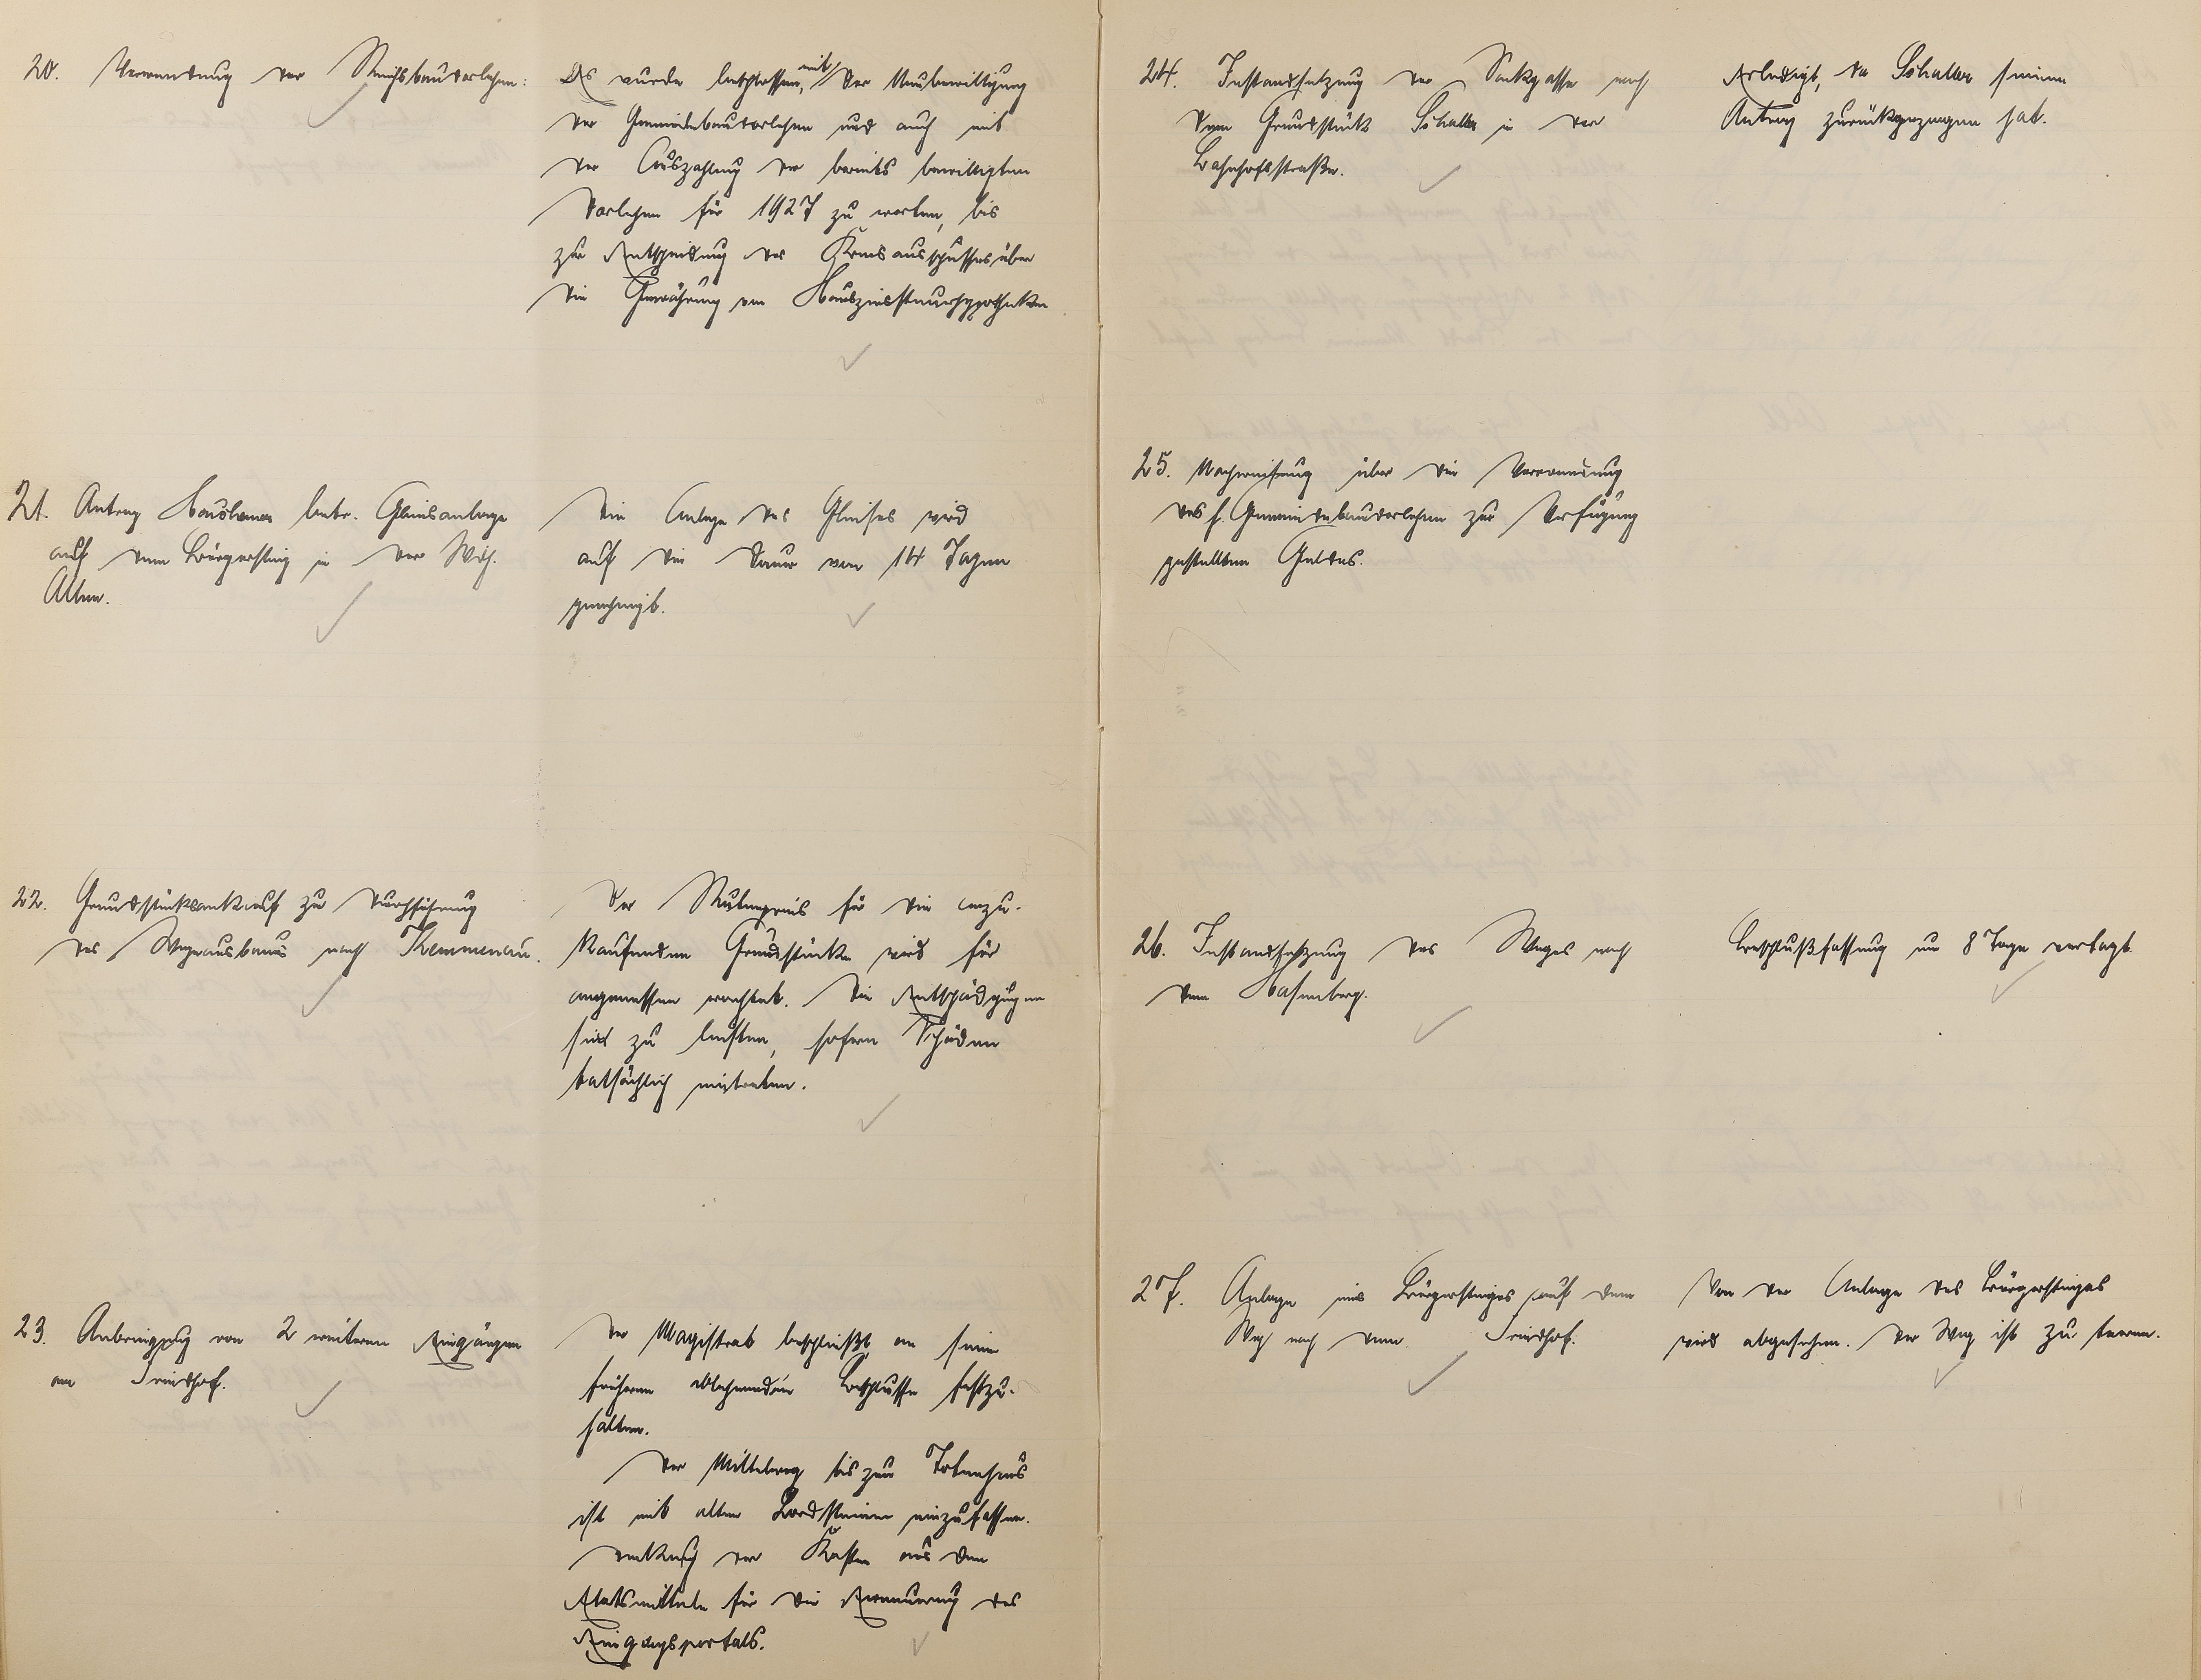 20. Verwendung der Reichsbaudarlehen:
Es wurde beschlossen, mit der Neubewilligung
der Gemeindebaudarlehen und auch mit
der Auszahlung der bereits bewilligten
Darlehen für 1927 zu warten, bis
zur Entscheidung des Kreisausschusses über
die Gewährung von Hauszinssteuerhypotheken
21. Antrag betr. Gleisanlage
auf dem Bürgersteig in der Wilh.
Allee.
Die Anlage des Gleises wird
auf die Dauer von 14 Tagen
genehmigt.
22. Grundstücksankauf zur Durchführung
des Wegeausbaus nach Kemmenau.
Der Rutenpreis für die anzu-
kaufenden Grundstücke wird für
angemessen erachtet. Die Entschädigungen
sind zu leisten, sofern Schäden
tatsächlich eintreten.
23. Anbringung von 2 weiteren Eingängen
am Friedhof.
Der Magistrat beschließt, an seine
früheren ablehnenden Beschlusse festzu-
halten.
Der Mittelweg bis zum Totenhaus
ist mit alten Bordsteinen einzufassen.
Deckung der Kosten aus den
Etatsmitteln für die Erneuerung des
Eingangsportals.
24. Instandsetzung der Sackgasse nach
dem Grundstück Schaller in der
Bahnhofsstraße.
Erledigt, da Schaller seinen
Antrag zurückgezogen hat.
25. Nachweisung über die Verwendung
des f. Gemeindebaudarlehen zur Verfügung
gestellten Geldes.
26. Instandsetzung des Weges nach
dem Hasenberg.
Beschlußfassung um 8 Tage vertagt.
27. Anlage eines Bürgersteiges auf dem
Weg nach dem Friedhof.
Von der Anlage des Bürgersteiges
wird abgesehen. Der Weg ist zu teeren.